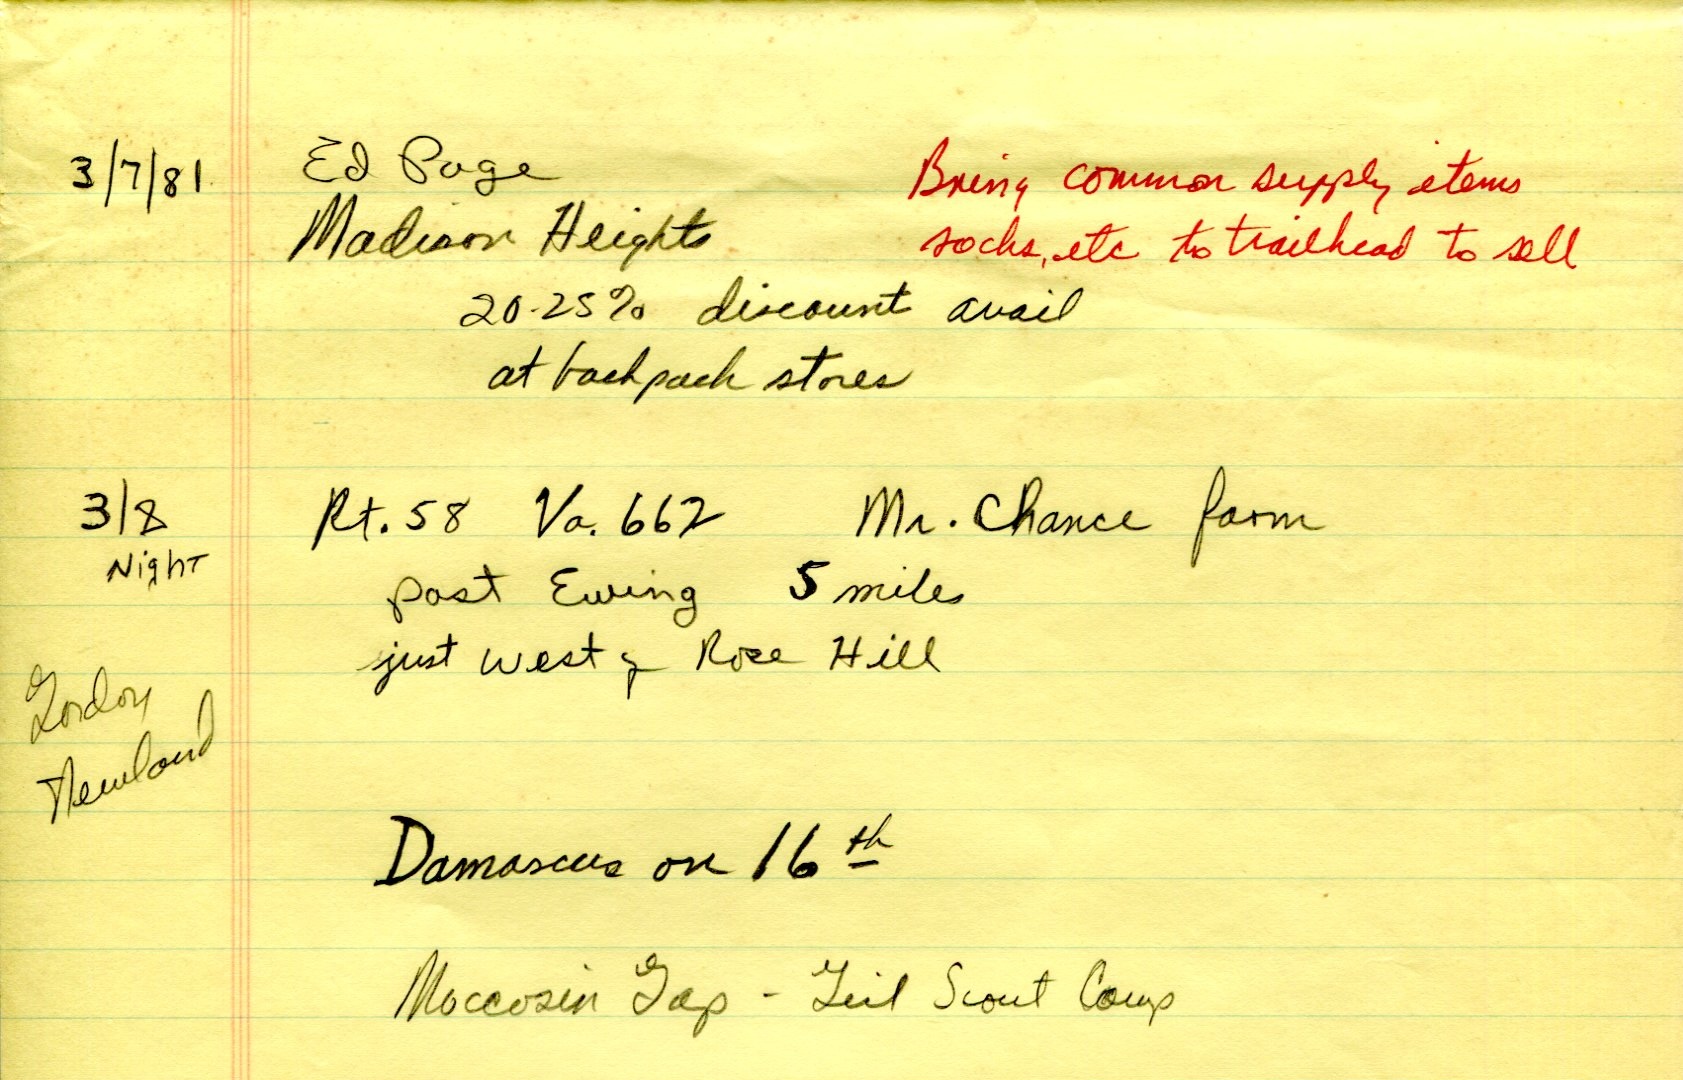 3/7/81 Ed Page
Madison Heights
20-25% discount avail
at backpack stores
Bring common supply items
socks, etc to trailhead to sell
3/8 Rt. 58 Va. 662 Mr. Chance farm
Night
past Ewing 5 miles
just west of Rose Hill
Gordon
Newland
Damascus on 16th
Moccosin Gap - Girl Scout Camp